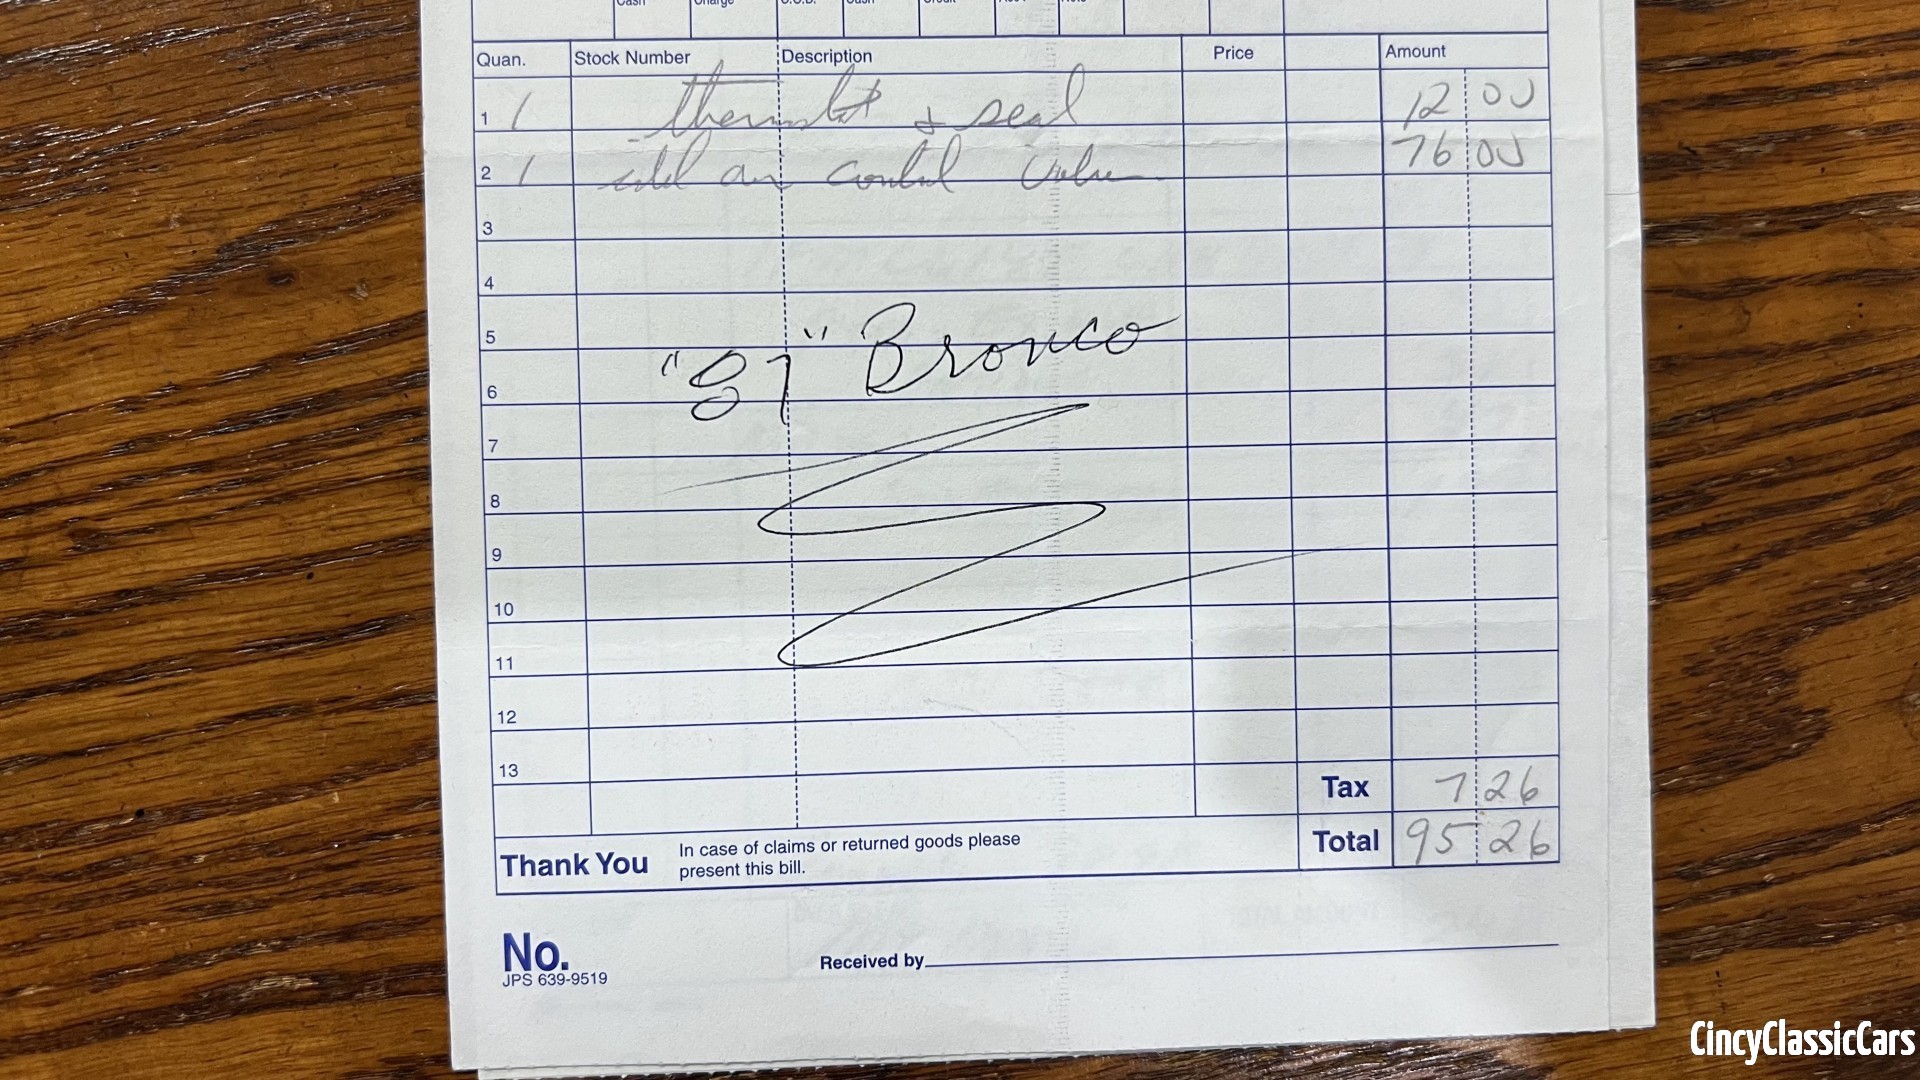 Cash Charge C.O.D. Cash Credit Acct. Note
Quan. Stock Number Description Price Amount
1 1 & seal 12 00
2 1 air control valve 76 00
3
4
5
"87" Bronco
6
7
8
9
10
11
12
13
Tax 7 26
Total 95 26
Thank You In case of claims or returned goods please
present this bill.
No.
JPS 639-9519
Received by
CincyClassicCars